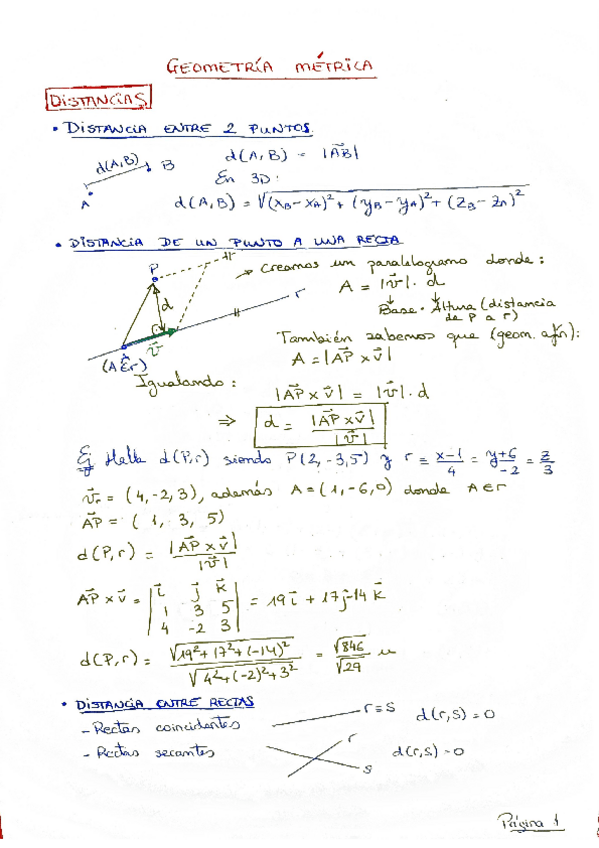 GEOMETRÍA MÉTRICA
DISTANCIAS
• DISTANCIA ENTRE 2 PUNTOS.
d(A,B) B
A
d(A,B) = |AB|
En 3D:
d(A,B) = √(x_B - x_A)² + (y_B - y_A)² + (z_B - z_A)²
• DISTANCIA DE UN PUNTO A UNA RECTA
P
d
r
v
(A ∈ r)
→ Creamos un paralelogramo donde:
A = |v| · d
Base · Altura (distancia
de P a r)
También sabemos que (geom. afín):
A = |AP × v|
Igualando:
|AP × v| = |v| · d
⇒ d = |AP × v| / |v|
Ej Halla d(P,r) siendo P(2,-3,5) y r ≡ x-1/4 = y+6/-2 = z/3
v_r = (4,-2,3), además A = (1,-6,0) donde A ∈ r
AP = (1, 3, 5)
d(P,r) = |AP × v| / |v|
AP × v = | i j k |
| 1 3 5 | = 19 i + 17 j - 14 k
| 4 -2 3 |
d(P,r) = √19² + 17² + (-14)² / √4² + (-2)² + 3² = √846 / √29 u
• DISTANCIA ENTRE RECTAS
- Rectas coincidentes r ≡ s d(r,s) = 0
- Rectas secantes r s d(r,s) = 0
Página 1